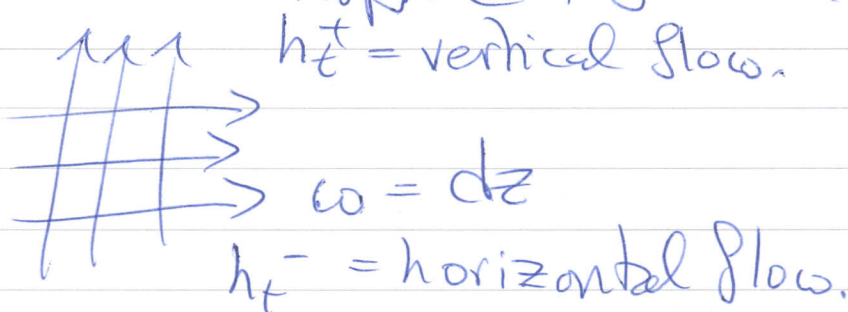 h_t^+ = vertical flow.
ω = dz
h_t^- = horizontal flow.